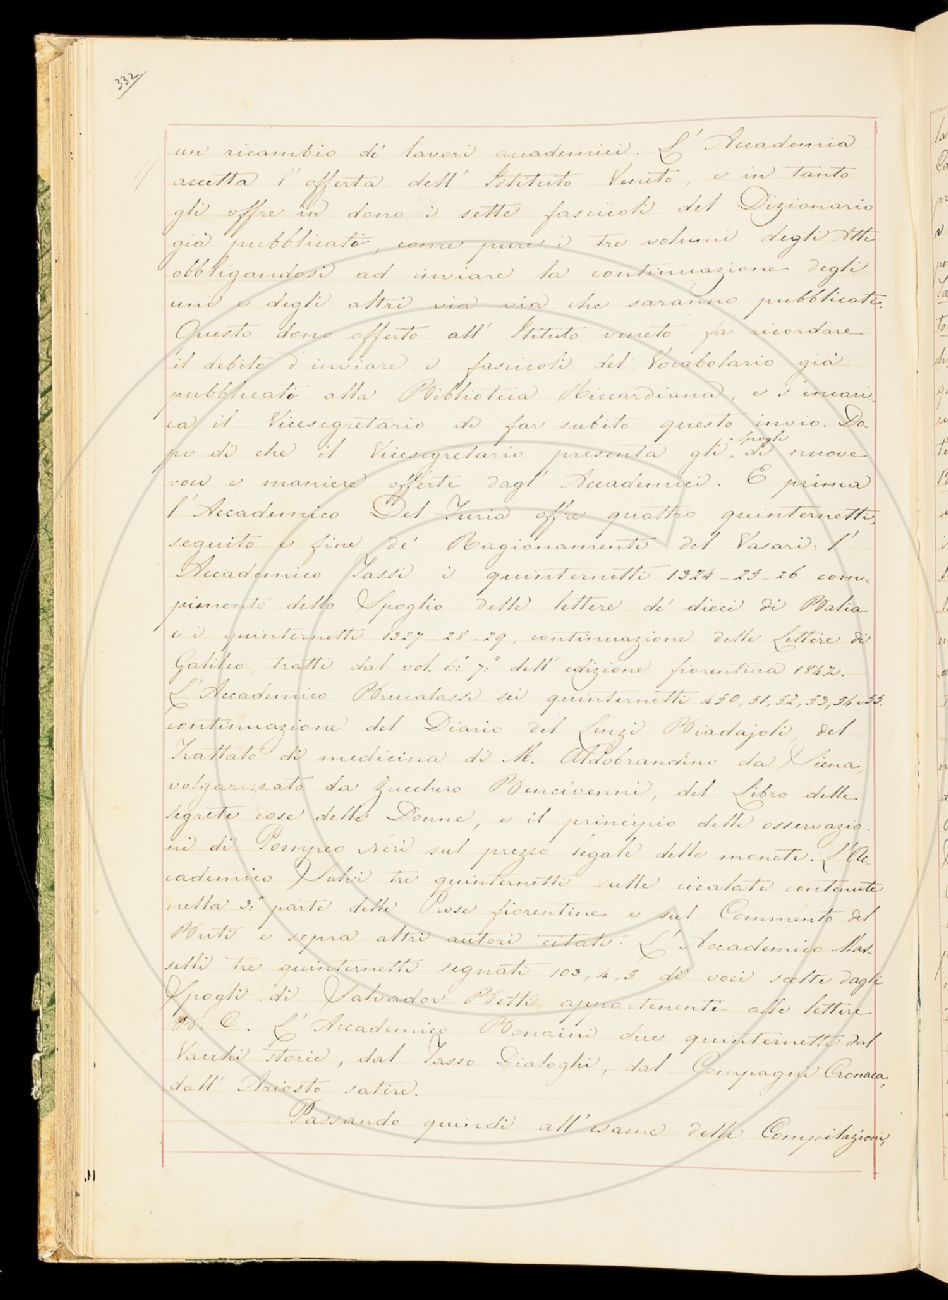 332
un ricambio de' lavori accademici. L'Accademia
accetta l'offerta dell'Istituto Veneto, e in tanto
gli offre in dono i sette fascicoli del Dizionario
già pubblicati, come pure i tre volumi degli Atti
obbligandosi ad inviare la continuazione degli
uni e degli altri via via che saranno pubblicati.
Questo dono offerto all'Istituto veneto fa ricordare
il debito d'inviare i fascicoli del Vocabolario già
pubblicati alla Biblioteca Riccardiana, e s'incari-
ca il Vicesegretario di far subito questo invio. Do-
po di che il Vicesegretario presenta gli spogli di nuove
voci e maniere offerti dagl'Accademici. E prima
l'Accademico Del Furia offre quattro quinternetti,
seguito e fine de' Ragionamenti del Vasari: l'
Accademico Tassi i quinternetti 1324-25-26 com-
pimento dello Spoglio delle lettere de' dieci di Balia
e i quinternetti 1327-28-29, continuazione delle Lettere di
Galileo, tratte dal vol. 6.° 7.° dell'edizione fiorentina 1842.
L'Accademico Brucalassi sei quinternetti 450, 51, 52, 53, 54 e 55
continuazione del Diario del Lenzi Biadajolo, del
Trattato di medicina di M. Aldobrandino da Siena,
volgarizzato da Zucchero Bencivenni, del Libro delle
segrete cose delle Donne, e il principio delle osservazio-
ni di Pompeo Neri sul prezzo legale delle monete. L'Ac-
cademico Salvi tre quinternetti sulle cicalate contenute
nella 3.ª parte delle Prose fiorentine e sul Commento del
Buti e sopra altri autori citati. L'Accademico Mas-
selli tre quinternetti segnati 103, 4, 5 di voci scelte dagli
Spogli di Salvador Betti appartenenti alle lettere
B. C. L'Accademico Bonaini due quinternetti dal
Varchi Storie, dal Tasso Dialoghi, dal Compagni Cronaca,
dall'Ariosto satire.
Passando quindi all'esame delle Compilazioni,